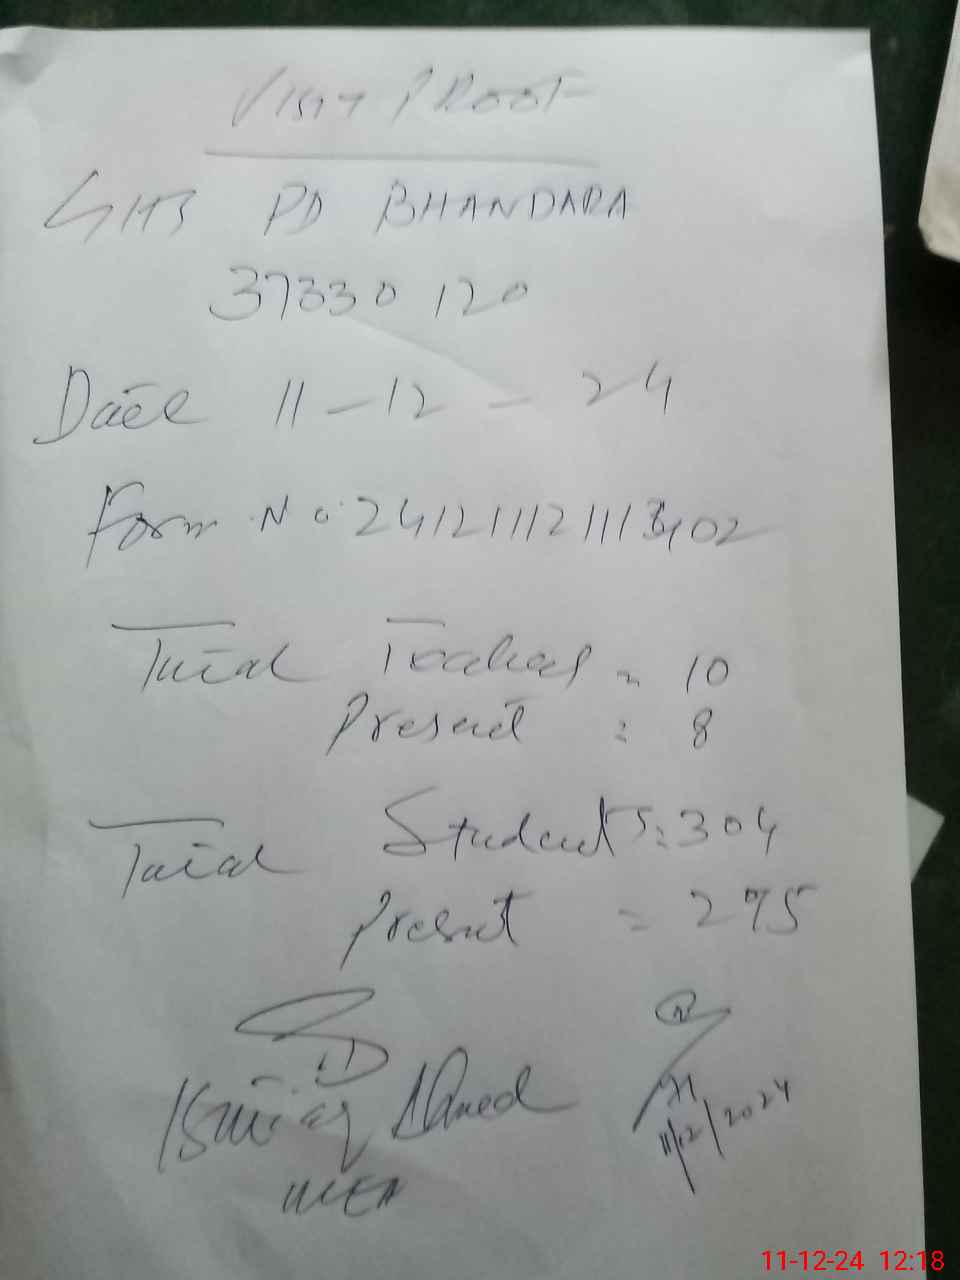 VISIT PROOF
GHS PD BHANDARA
37330120
Date 11-12-24
Form No: 
Total Teachers = 10
Present = 8
Total Students: 304
Present = 275
Ahmed
MEA
11/12/2024
11-12-24 12:18